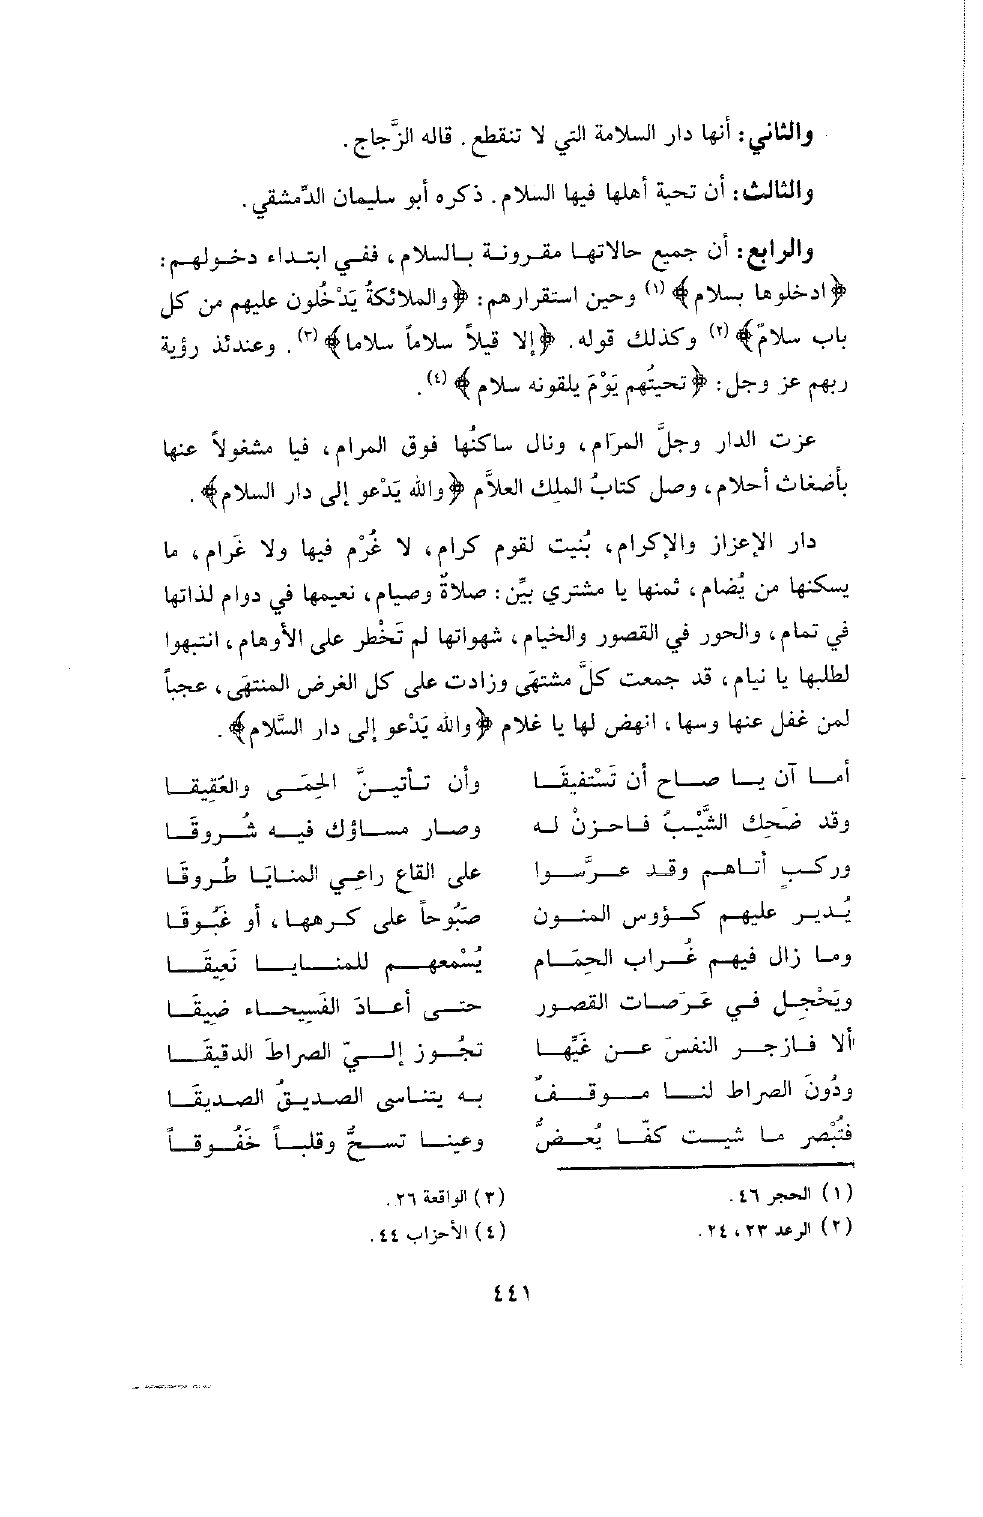 والثاني: أنها دار السلامة التي لا تنقطع. قاله الزَّجاج.
والثالث: أن تحية أهلها فيها السلام. ذكره أبو سليمان الدّمشقي.
والرابع: أن جميع حالاتها مقرونة بالسلام، ففي ابتداء دخولهم:
﴿ادخلوها بسلام﴾(١) وحين استقرارهم: ﴿والملائكةُ يَدْخُلون عليهم من كل
باب سلامٌ﴾(٢) وكذلك قوله. ﴿إلا قيلاً سلاماً سلاما﴾(٣). وعندئذ رؤية
ربهم عز وجل: ﴿تحيتُهم يَوْمَ يلقونه سلام﴾(٤).
عزت الدار وجلَّ المرَام، ونال ساكنُها فوق المرام، فيا مشغولاً عنها
بأضغاث أحلام، وصل كتابُ الملك العلاَّم ﴿والله يَدْعو إلى دار السلام﴾.
دار الإعزاز والإكرام، بُنيت لقوم كرام، لا غُرْم فيها ولا غَرام، ما
يسكنها من يُضام، ثمنها يا مشتري بيِّن: صلاةٌ وصيام، نعيمها في دوام لذاتها
في تمام، والحور في القصور والخيام، شهواتها لم تَخْطر على الأوهام، انتبهوا
لطلبها يا نيام، قد جمعت كلَّ مشتهَى وزادت على كل الغرض المنتهَى، عجباً
لمن غفل عنها وسها، انهض لها يا غلام ﴿والله يَدْعو إلى دار السَّلام﴾.
أمـا آن يـا صـاح أن تَسْتفيقَـا وأن تـأتيـنَّ الحِمَـى والعَقِيقـا
وقد ضَحِك الشَّيْبُ فـاحزنْ لـه وصـار مسـاؤك فيـه شُـروقَـا
وركـبٍ أتـاهـم وقـد عـرَّسـوا على القاع راعِي المنـايَـا طُروقَـا
يُـديـر عليهـم كـؤوس المنـون صَبُوحاً على كرهها، أو غَبُوقَا
ومـا زال فيهـم غُـراب الحِمَـام يُسْمعهـم للمنـايـا نَعِيقَـا
ويَحْجِل في عَرَصات القصور حتـى أعـادَ الفَسِيحـاء ضِيقَـا
ألا فـازجـر النفسَ عـن غَيِّهـا تجُـوز إلـيّ الصراطَ الدقيقَـا
ودُونَ الصراط لنـا موقـفٌ به يتناسى الصديقُ الصديقَـا
فتُبْصر مـا شيـت كفّـا يُعـضُّ وعينـا تسـحُّ وقلبـاً خَفُوقـاً
(١) الحجر ٤٦.
(٢) الرعد ٢٣، ٢٤.
(٣) الواقعة ٢٦.
(٤) الأحزاب ٤٤.
٤٤١